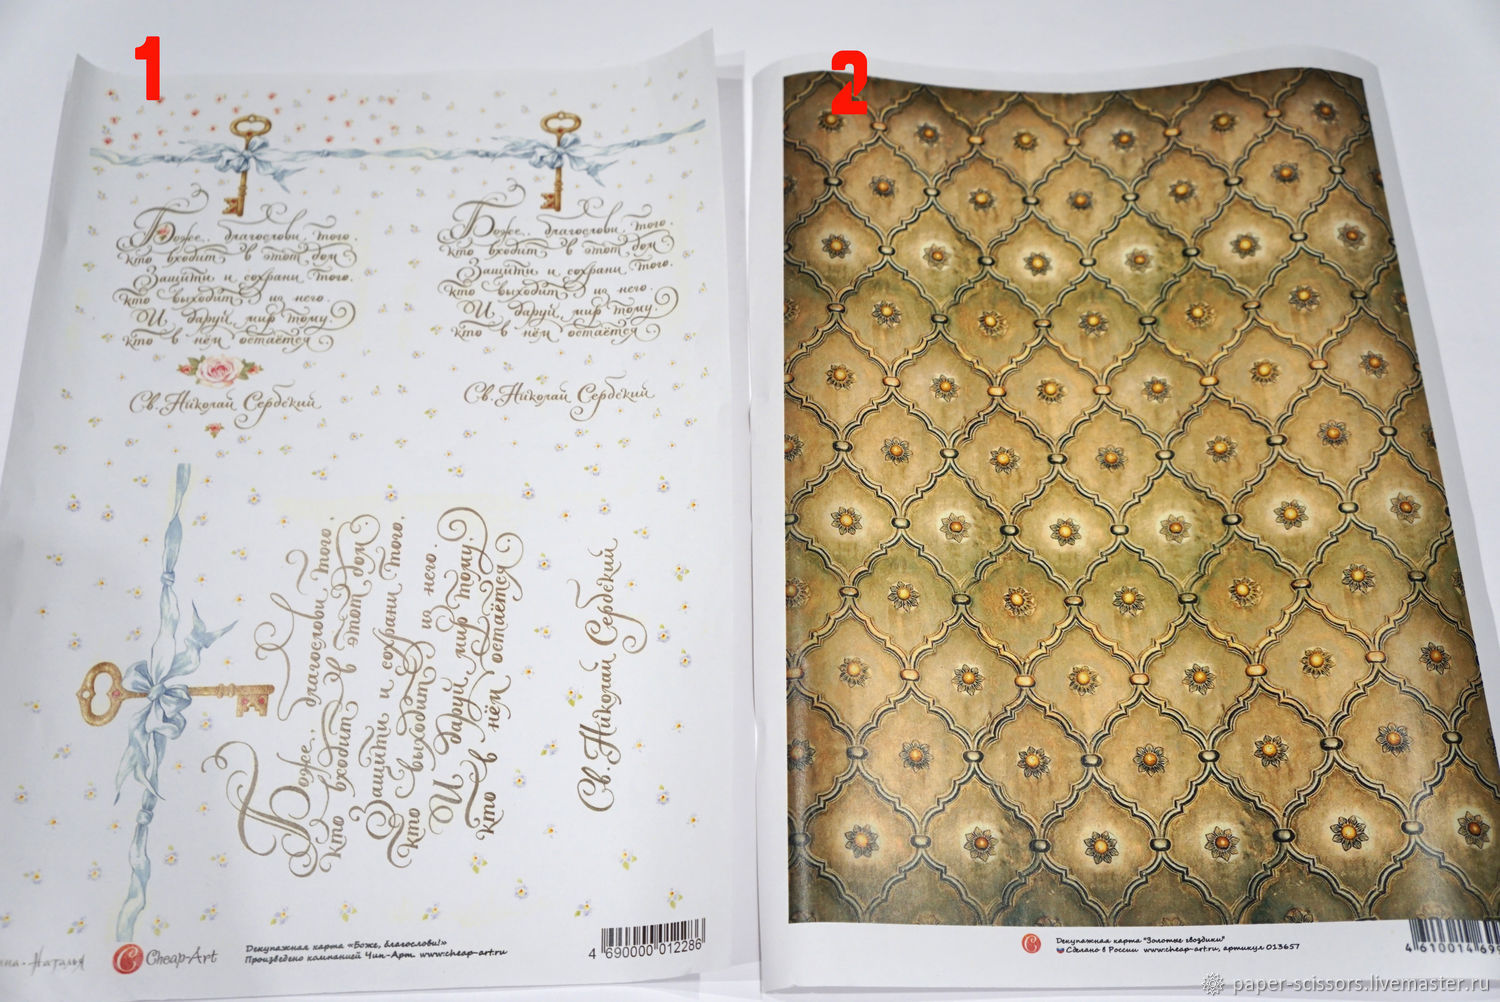 1
2
Боже, благослови того,
кто входит в этот дом
Защити и сохрани того,
кто выходит из него.
И даруй мир тому,
кто в нём остаётся
Св. Николай Сербский
Боже, благослови того,
кто входит в этот дом
Защити и сохрани того,
кто выходит из него.
И даруй мир тому,
кто в нём остаётся
Св. Николай Сербский
Боже, благослови того,
кто входит в этот дом
Защити и сохрани того,
кто выходит из него.
И даруй мир тому,
кто в нём остаётся
Св. Николай Сербский
Наталья
Cheap-Art
Декупажная карта «Боже, благослови!»
Произведено компанией Чип-Арт. www.cheap-art.ru
4 690000 012286
Декупажная карта "Золотые гвоздики"
Сделано в России www.cheap-art.ru, артикул 013657
paper-scissors.livemaster.ru